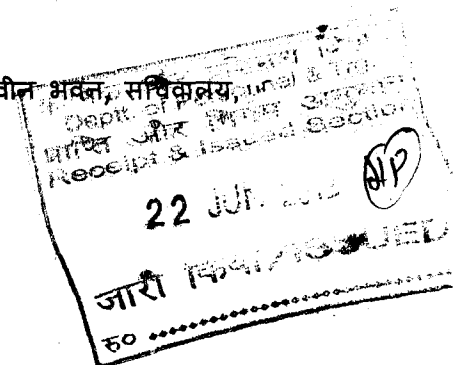 वीन भवन, सचिवालय,
Deptt. of Personnel & Trg.
प्राप्ति और निर्गम अनुभाग
Receipt & Issued Section
22 JUN
जारी किया/ISSUED
रु०